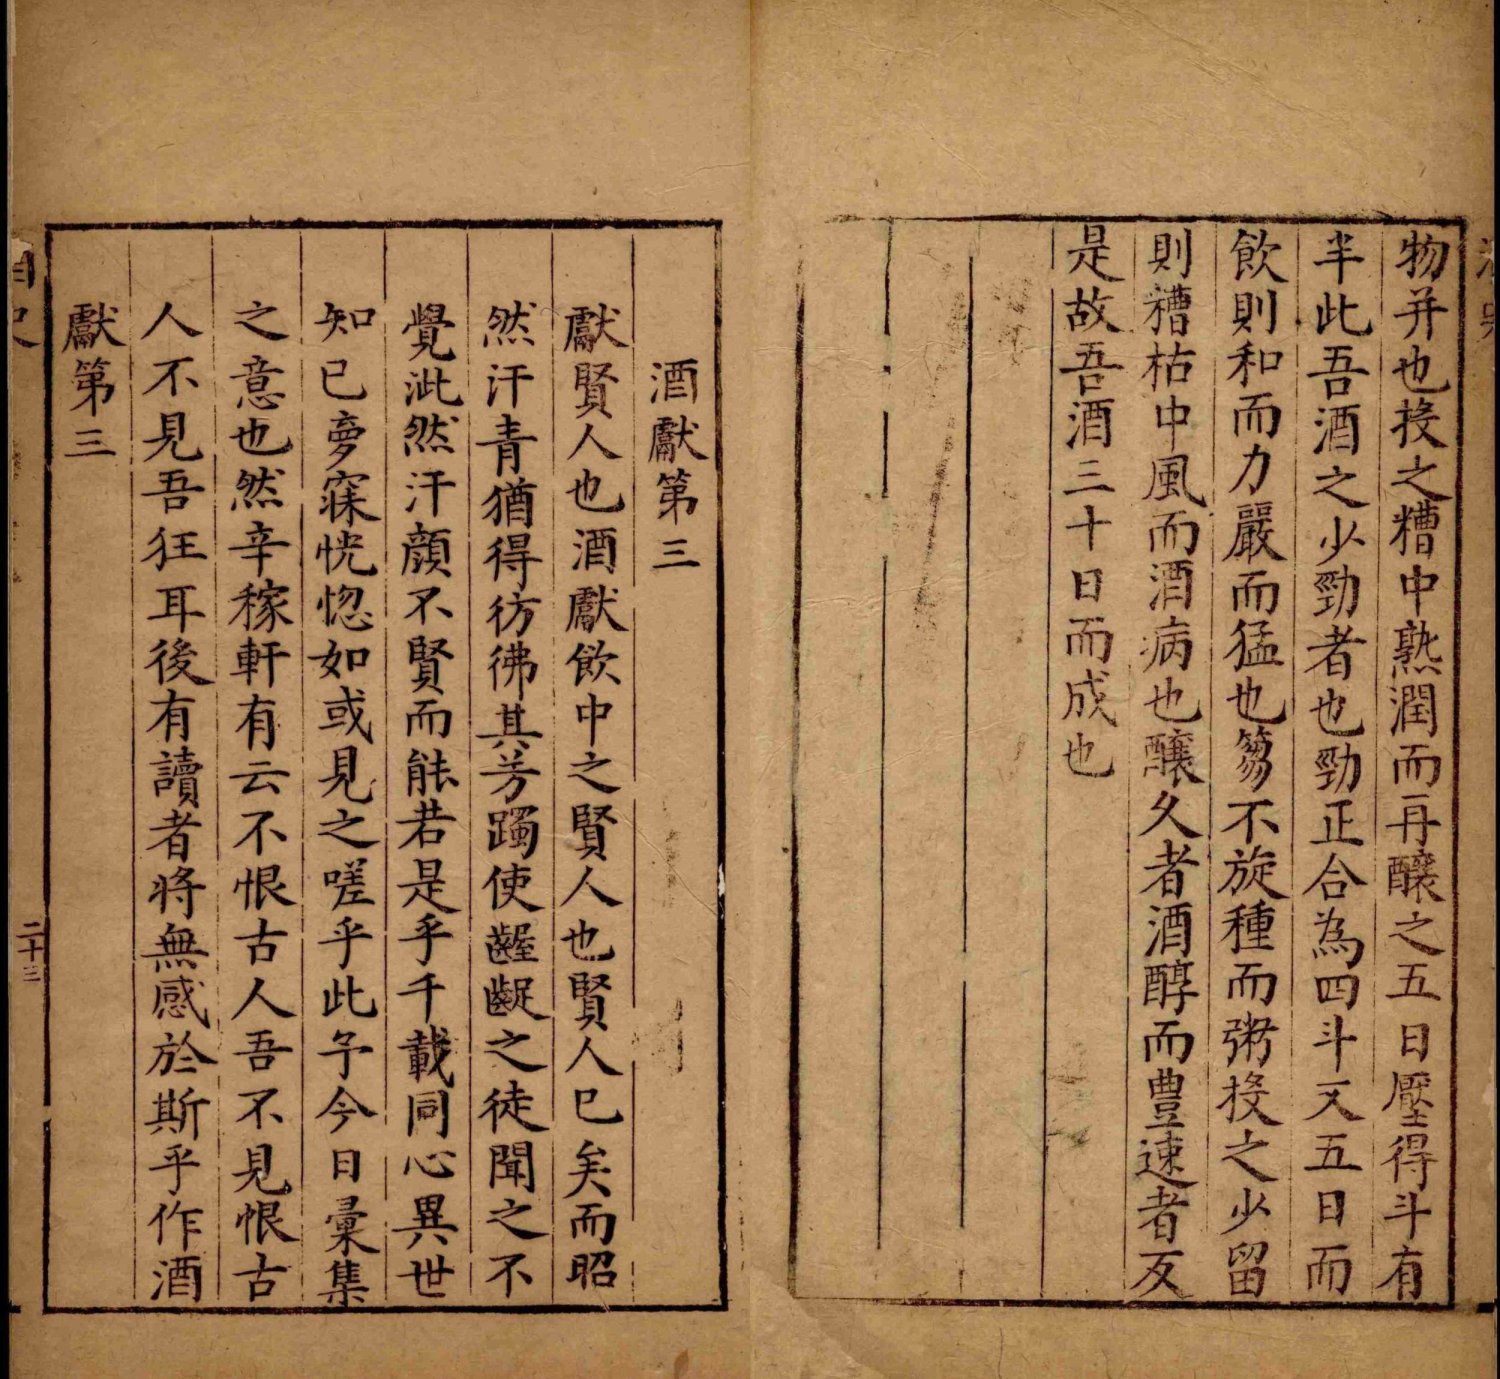 物并也投之糟中熟潤而再釀之五日壓得斗有
半此吾酒之少勁者也勁正合為四斗又五日而
飲則和而力嚴而猛也篘不旋種而粥投之少留
則糟枯中風而酒病也釀久者酒醇而豊速者反
是故吾酒三十日而成也
酒獻第三
獻賢人也酒獻飲中之賢人也賢人已矣而昭
然汗青猶得彷彿其芳躅使齷齪之徒聞之不
覺泚然汗顔不賢而能若是乎千載同心異世
知已夣寐恍惚如或見之嗟乎此予今日彙集
之意也然辛稼軒有云不恨古人吾不見恨古
人不見吾狂耳後有讀者將無感於斯乎作酒
獻第三
二十三